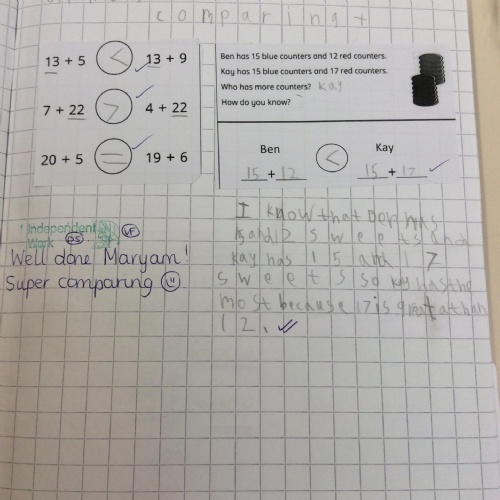 comparing +
13 + 5 < 13 + 9
7 + 22 > 4 + 22
20 + 5 = 19 + 6
Ben has 15 blue counters and 12 red counters.
Kay has 15 blue counters and 17 red counters.
Who has more counters? Kay
How do you know?
Ben Kay
15 + 12 < 15 + 17
Independent
Work PS VF
Well done Maryam!
Super comparing
I know that Ben has
15 and 12 sweets and
kay has 15 and 17
sweets so kay has the
most because 17 is greata than
12.